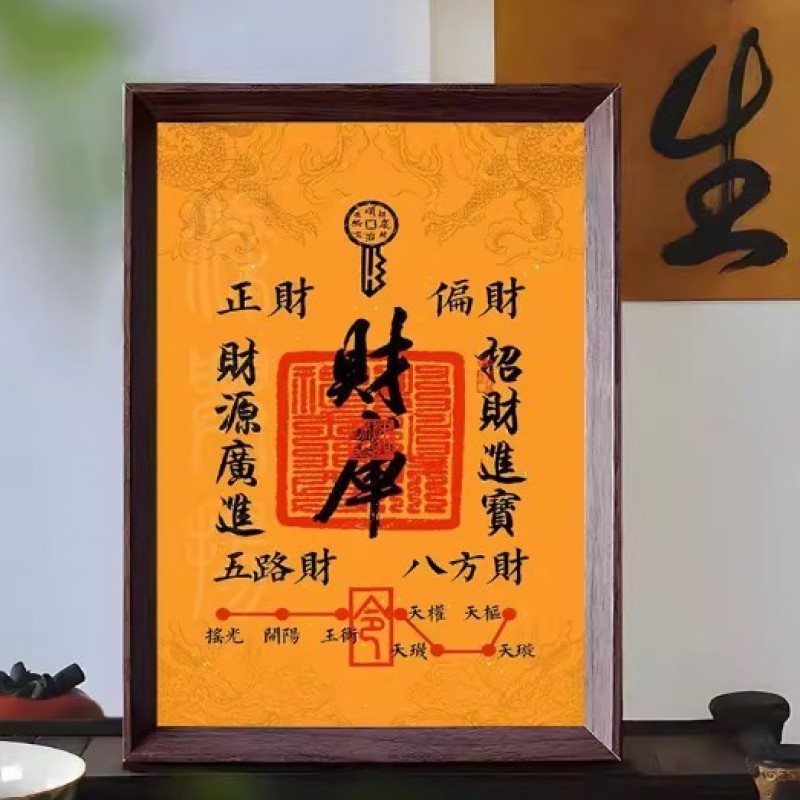 生
順治
正財 偏財
招財進寶
財庫
財源廣進
五路財 八方財
令
天權 天樞
搖光 開陽 玉衡
天璣 天璇